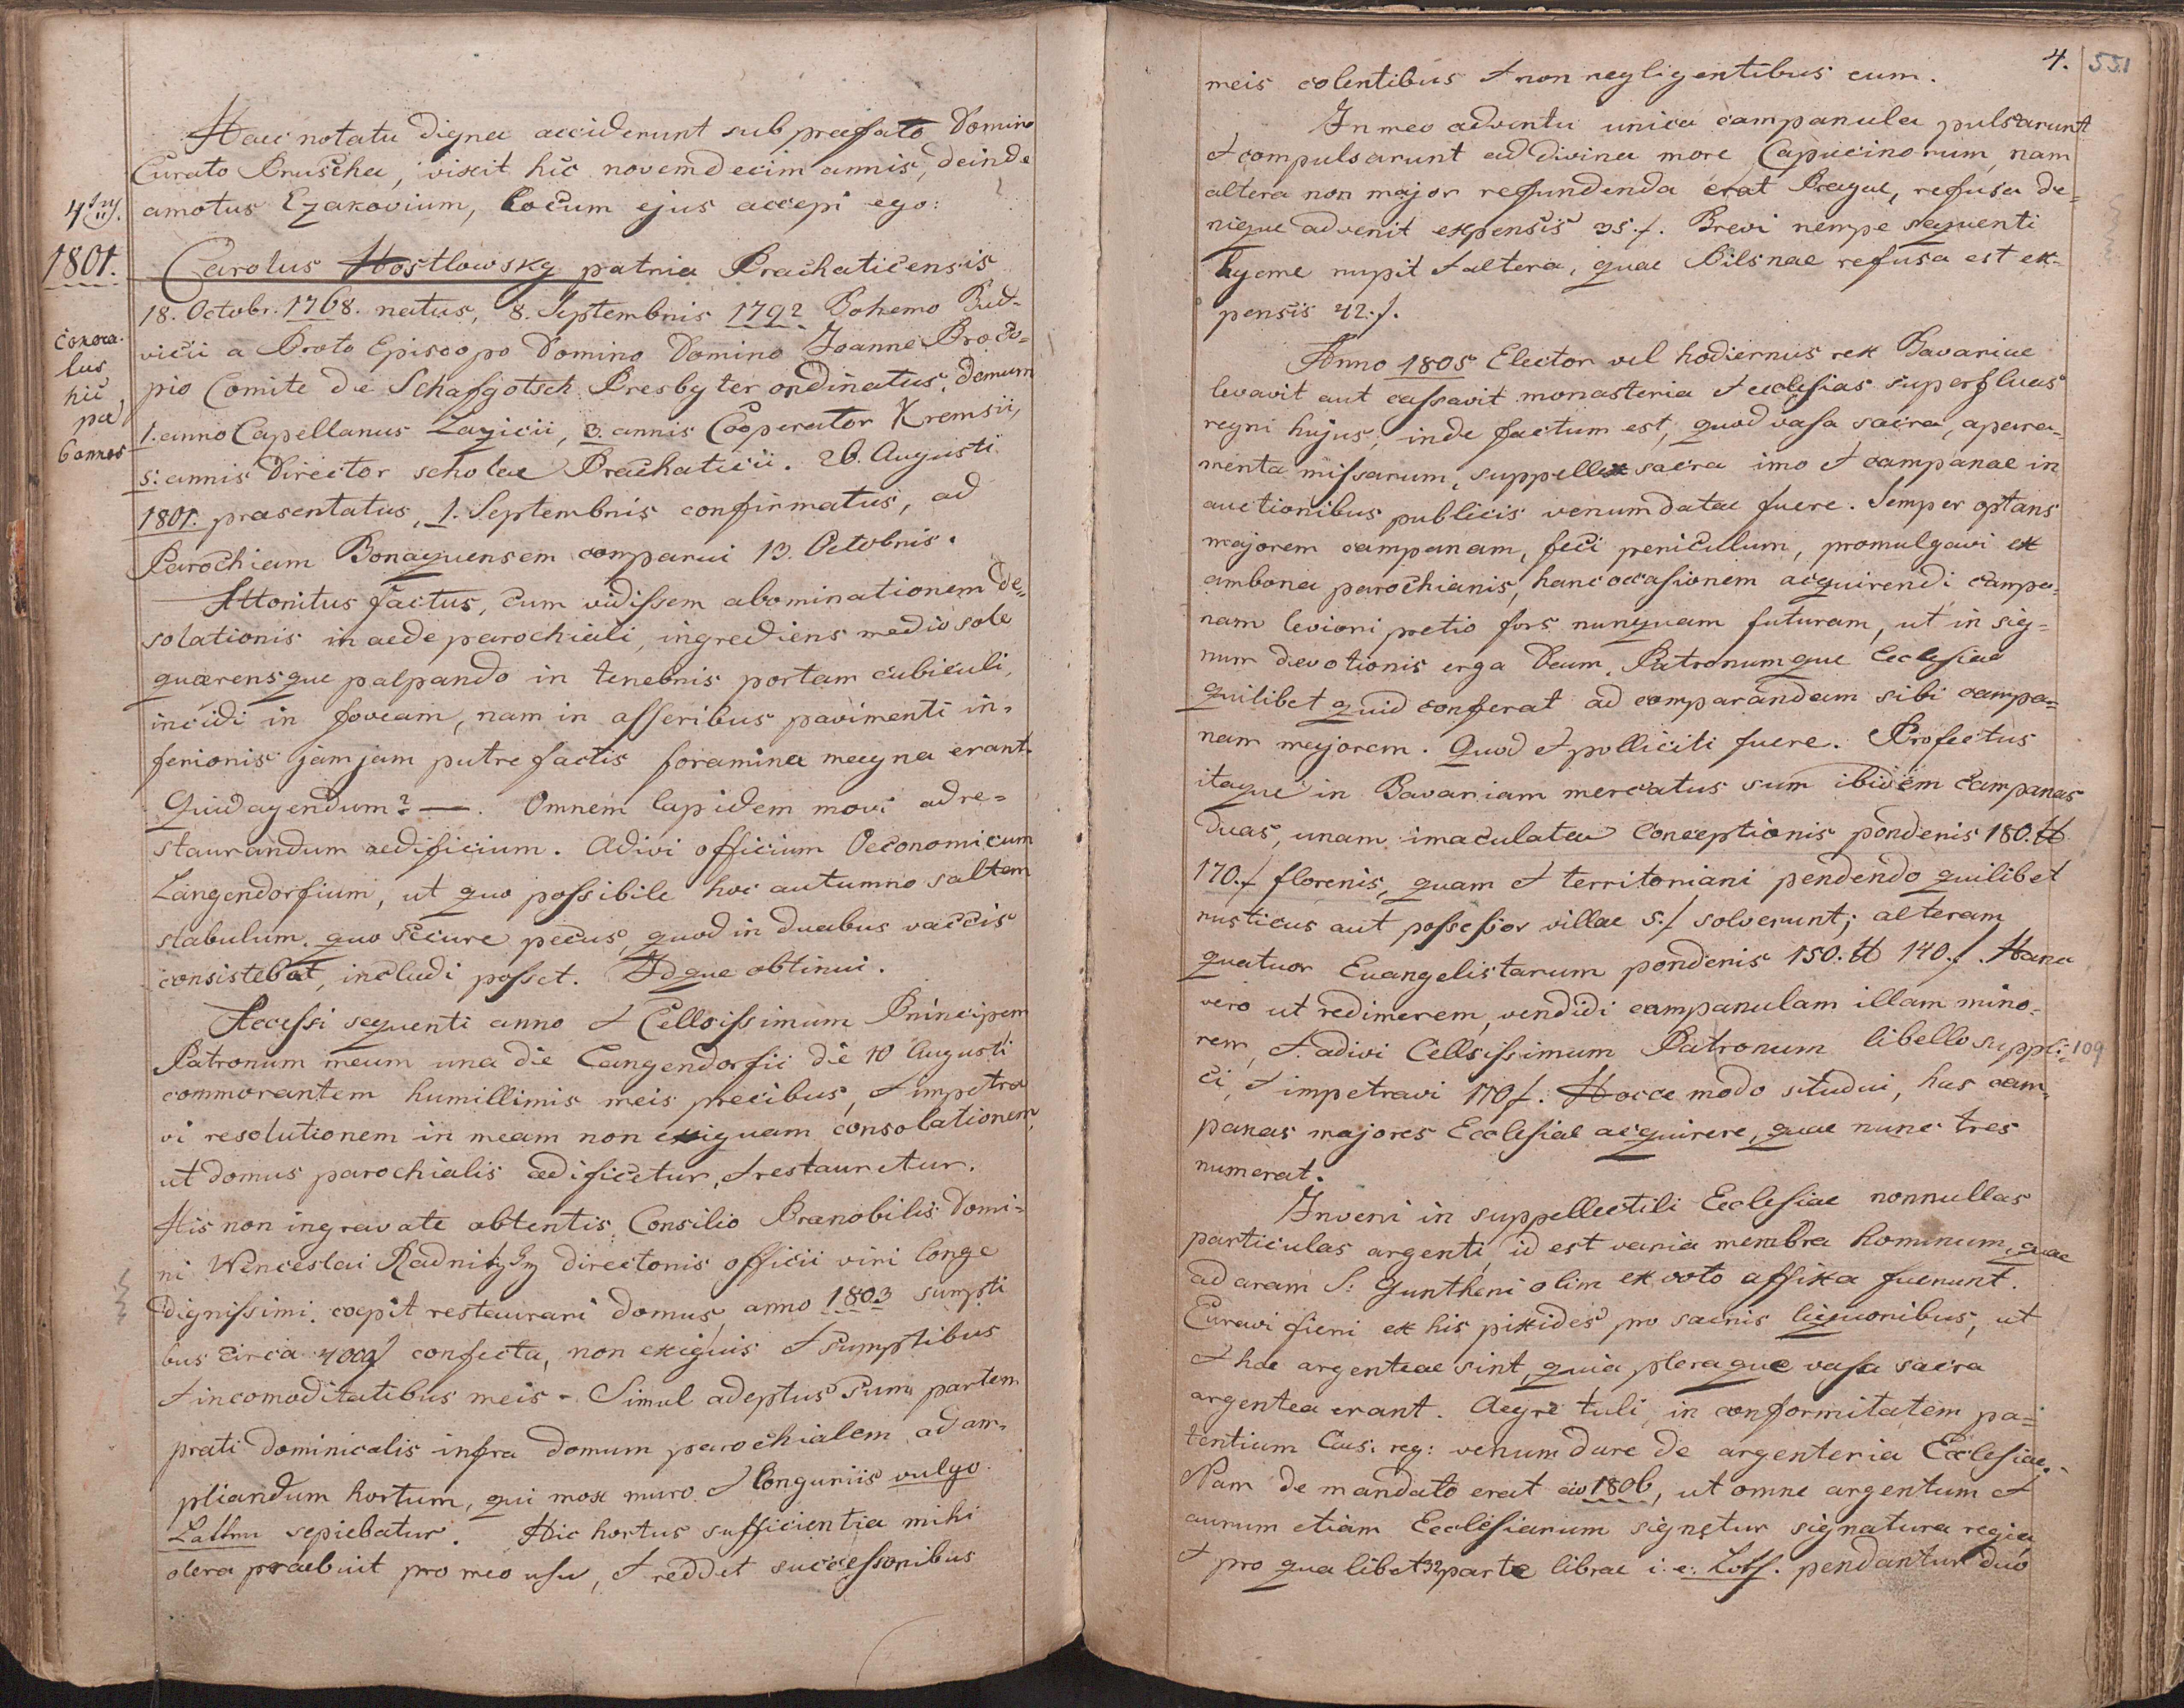 Haec notatu digna acciderunt sub praefato Domino
Curato Pruscha, vixit hic novemdecim annis, deinde
amotus Ezakovium, locum ejus accepi ego:
4tus.
1801.
Carolus Hostlowsky patria Prachaticensis
18. Octobr. 1768. natus, 8. Septembris 1792 Bohemo Bud-
vicii a Proto Episcopo Domino Domino Joanne Proco-
pio Comite de Schafgotsch Presbyter ordinatus. demum
1. anno Capellanus Lazicii, 3. annis Cooperator Kremsii,
5: annis Director scholae Prachaticii. 26. Augusti
1801. praesentatus, 1. Septembris confirmatus, ad
Parochiam Bonaquensem comparui 13. Octobris.
hic
6 annos
Attonitus factus, cum vidissem abominationem de=
solationis in aede parochiali, ingrediens medio sole
quaerensque palpando in tenebris portam cubiculi,
incidi in foveam, nam in asseribus pavimenti in-
ferioris jamjam putrefactis foramina magna erant.
Quid agendum? —. Omnem lapidem movi ad re=
staurandum aedificium. Adivi officium Oeconomicum
Langendorfium, ut quo possibile hoc autumno saltem
stabulum, quo secure pecus, quod in duabus vaccis
consistebat, includi posset. Idque obtinui.
Accessi sequenti anno et Cellsissimum Principem
Patronum meum una die Langendorfii die 10 Augusti
commorantem humillimis meis precibus, et impetra
vi resolutionem in meam non exiguam consolationem,
ut domus parochialis aedificetur, et restauretur.
His non ingravate obtentis, Consilio Praenobilis Domi-
ni Wenceslai Radnitzky directoris officii viri longe
dignissimi. coepit restaurari domus, anno 1803 sumpti
bus circa 4000f confecta, non exiguis et sumptibus
et incomoditatibus meis - Simul adeptus sum partem
prati dominicalis infra domum parochialem ad am-
pliandum hortum, qui mox muro et longuriis vulgo
Latten sepiebatur. Hic hortus sufficientia mihi
olera praebuit pro meo usu, et reddet successoribus
4. 551
meis colentibus et non negligentibus eum.
In meo adventu unica campanula pulsarunt
et compulsarunt ad divina more Capucinorum, nam
altera non major refundenda erat Pragae, refusa de=
nique advenit expensis 35.f. Brevi nempe sequenti
hyeme rupit et altera, quae Pilsnae refusa est ex-
pensis 42.f.
Anno 1805 Elector vel hodiernus rex Bavariae
levavit aut cassavit monasteria et ecclesias superfluas
regni hujus, inde factum est, quod vasa sacra, apara-
menta missarum, suppellex sacra imo et campanae in
auctionibus publicis venumdatae fuere. Semper optans
majorem campanam, feci periculum, promulgavi ex
ambona parochianis, hanc occasionem acquirendi campa-
nam leviori pretio fors nunquam futuram, ut in sig=
num devotionis erga Deum, Patronumque Ecclesiae
quilibet quid conferat ad comparandam sibi campa=
nam majorem. Quod et polliciti fuere. Profectus
itaque in Bavariam mercatus sum ibidem campanas
duas, unam imaculatae Conceptionis ponderis 180. ℔
170.f florenis, quam et territoriani pendendo quilibet
rusticus aut possessor villae 5.f solverunt; alteram
quatuor Evangelistarum ponderis 150. ℔ 140.f. Hanc
vero ut redimerem, vendidi campanulam illam mino-
rem, et adivi Cellsissimum Patronum libello suppli-
109
ci, et impetravi 170f. Hocce modo studui, has cam-
panas majores Ecclesiae acquirere, quae nunc tres
numerat.
Inveni in suppellectili Ecclesiae nonnullas
particulas argenti, id est varia membra hominum, quae
ad aram S: Guntheri olim ex voto affixa fuerunt.
Curavi fieri ex his pixides pro sacris liquoribus, ut
et hae argenteae sint, quia pleraque vasa sacra
argentea erant. Aegre tuli, in conformitatem pa=
tentium Caes: reg: venum dare de argenteria Ecclesiae.
Nam de mandato erat aio 1806, ut omne argentum et
aurum etiam Ecclesiarum signetur signatura regia,
et pro qualibet 32 parte librae i: e: Loth. pendantur duo